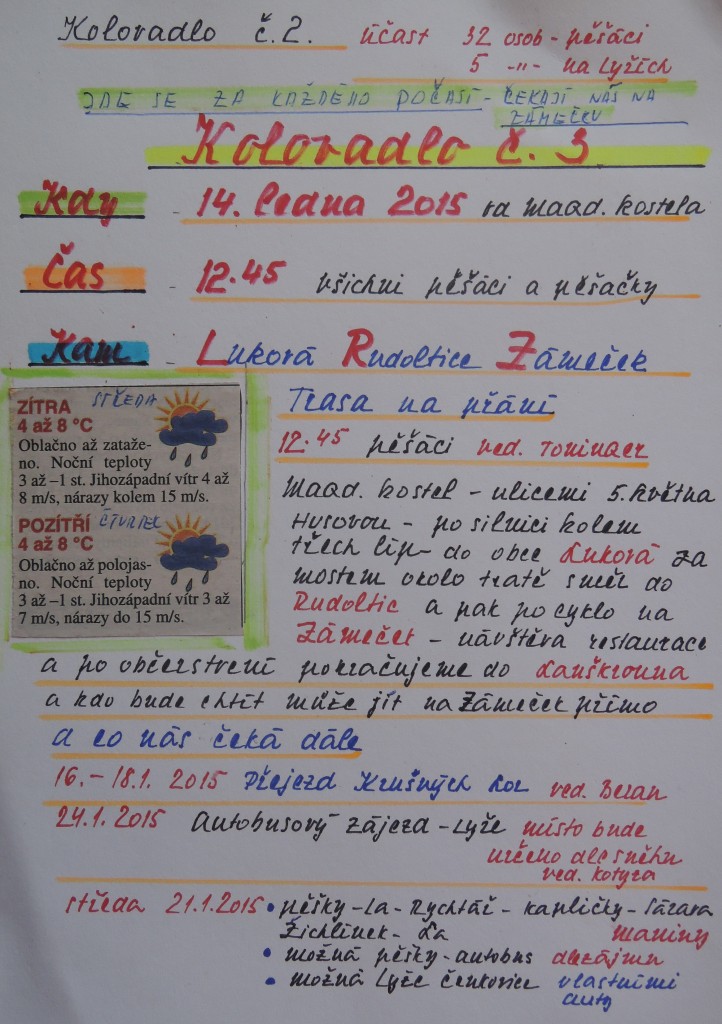 Koloradlo č.2. účast 32 osob - pěšáci
5 -"- na lyžích
JDE SE ZA KAŽDÉHO POČASÍ - ČEKAJÍ NÁS NA
ZÁMEČKU
Koloradlo č. 3
Kdy - 14. ledna 2015 od MAGD. kostela
Čas - 12.45 všichni pěšáci a pěšačky
Kam - Luková Rudoltice Zámeček
Trasa na přání
12.45 pěšáci ved. Toninger
ZÍTRA STŘEDA
4 až 8 °C
Oblačno až zataže-
no. Noční teploty
3 až –1 st. Jihozápadní vítr 4 až
8 m/s, nárazy kolem 15 m/s.
POZÍTŘÍ ČTVRTEK
4 až 8 °C
Oblačno až polojas-
no. Noční teploty
3 až –1 st. Jihozápadní vítr 3 až
7 m/s, nárazy do 15 m/s.
Magd. kostel - ulicemi 5. května
Husovou - po silnici kolem
třech lip - do obce Luková za
mostem okolo tratě směr do
Rudoltic a pak po cyklo na
Zámeček - návštěva restaurace
a po občerstvení pokračujeme do Lanškrouna
a kdo bude chtít může jít na Zámeček přímo
a co nás čeká dále
16. - 18.1. 2015 Přejezd Krušných hor ved. Beran
24.1. 2015 Autobusový zájezd - Lyže místo bude
určeno dle sněhu
ved. kotyza
středa 21.1.2015 • pěšky - La - Rychtář - kapličky - Sázava
Žichlínek - La maniny
• možná pěšky - autobus dle zájmu
• možná Lyže Čenkovice vlastními
auty